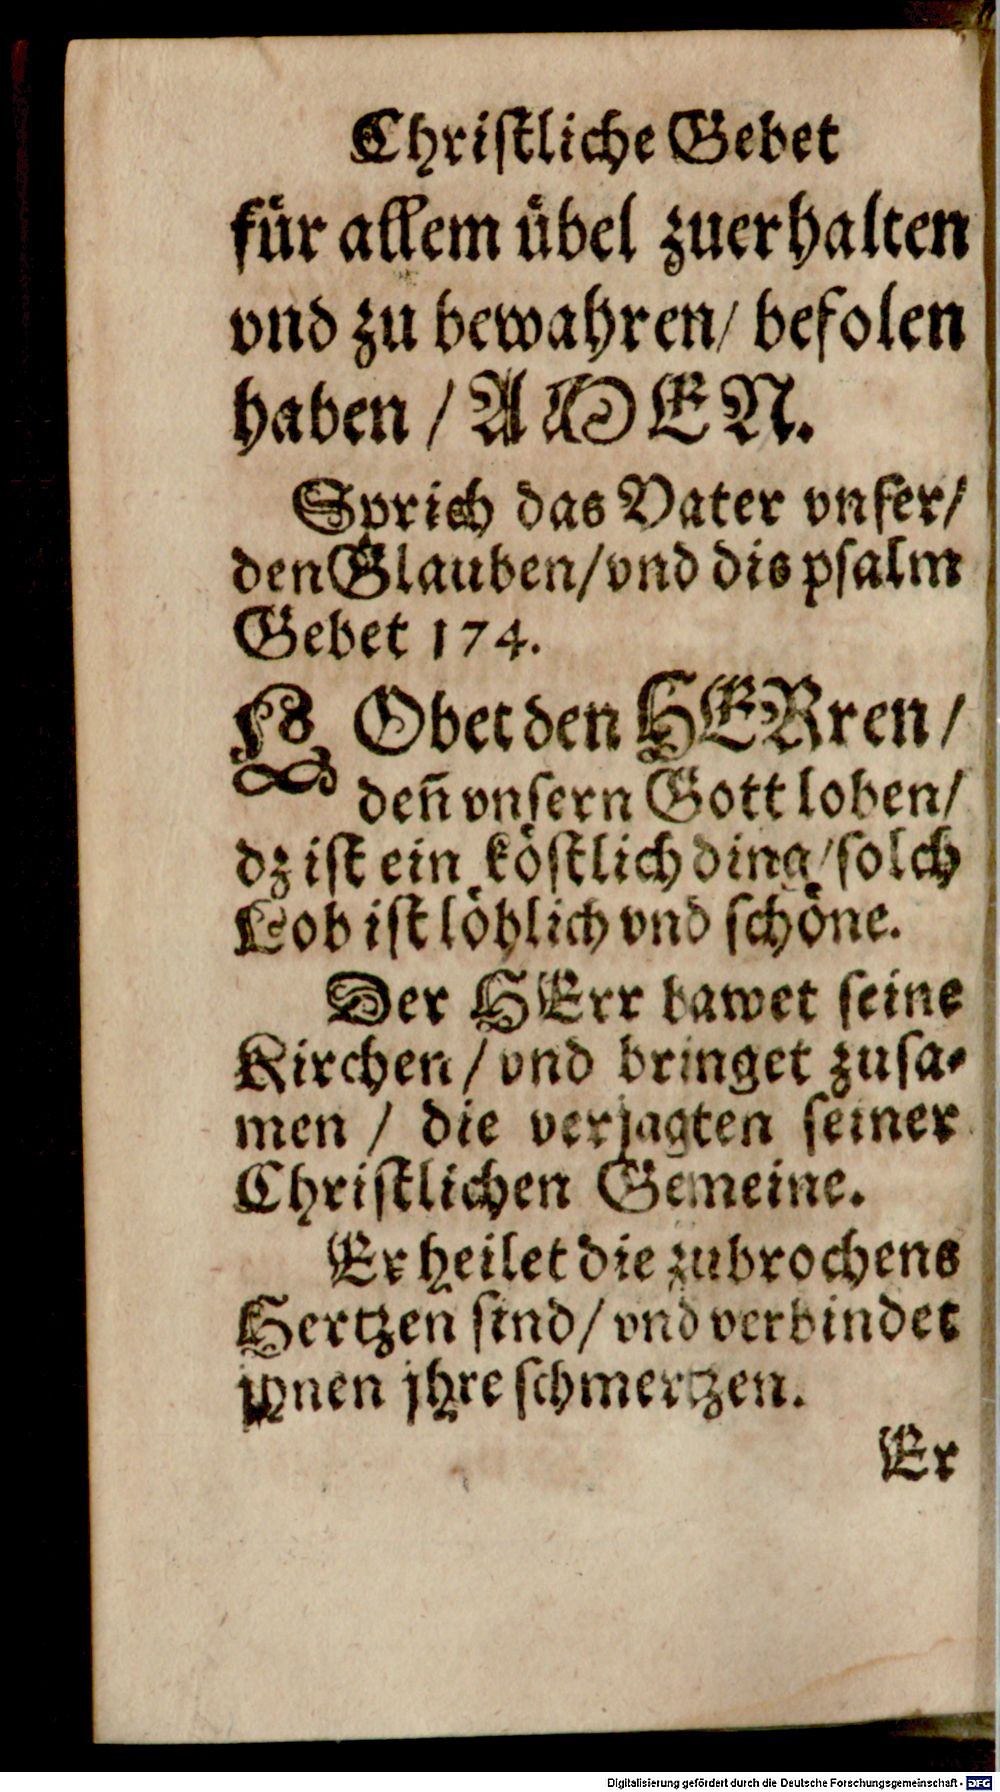 Christliche Gebet
für allem übel zuerhalten
vnd zu bewahren/ befolen
haben / AMEN.
Sprich das Vater vnser/
den Glauben/vnd dis psalm
Gebet 174.
LObet den HERren /
deñ vnsern Gott loben/
dz ist ein köstlich ding/solch
Lob ist löblich vnd schöne.
Der HErr bawet seine
Kirchen / vnd bringet zusa-
men / die verjagten seiner
Christlichen Gemeine.
Er heilet die zubrochens
Hertzen sind/ vnd verbindet
jhnen jhre schmertzen.
Er
Digitalisierung gefördert durch die Deutsche Forschungsgemeinschaft - DFG